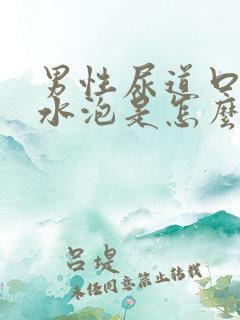 男性尿道口
水泡是怎麼
呂堤
未经同意禁止转载